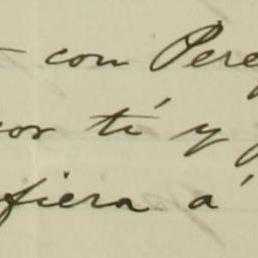 com Pere
por ti y
fiera á